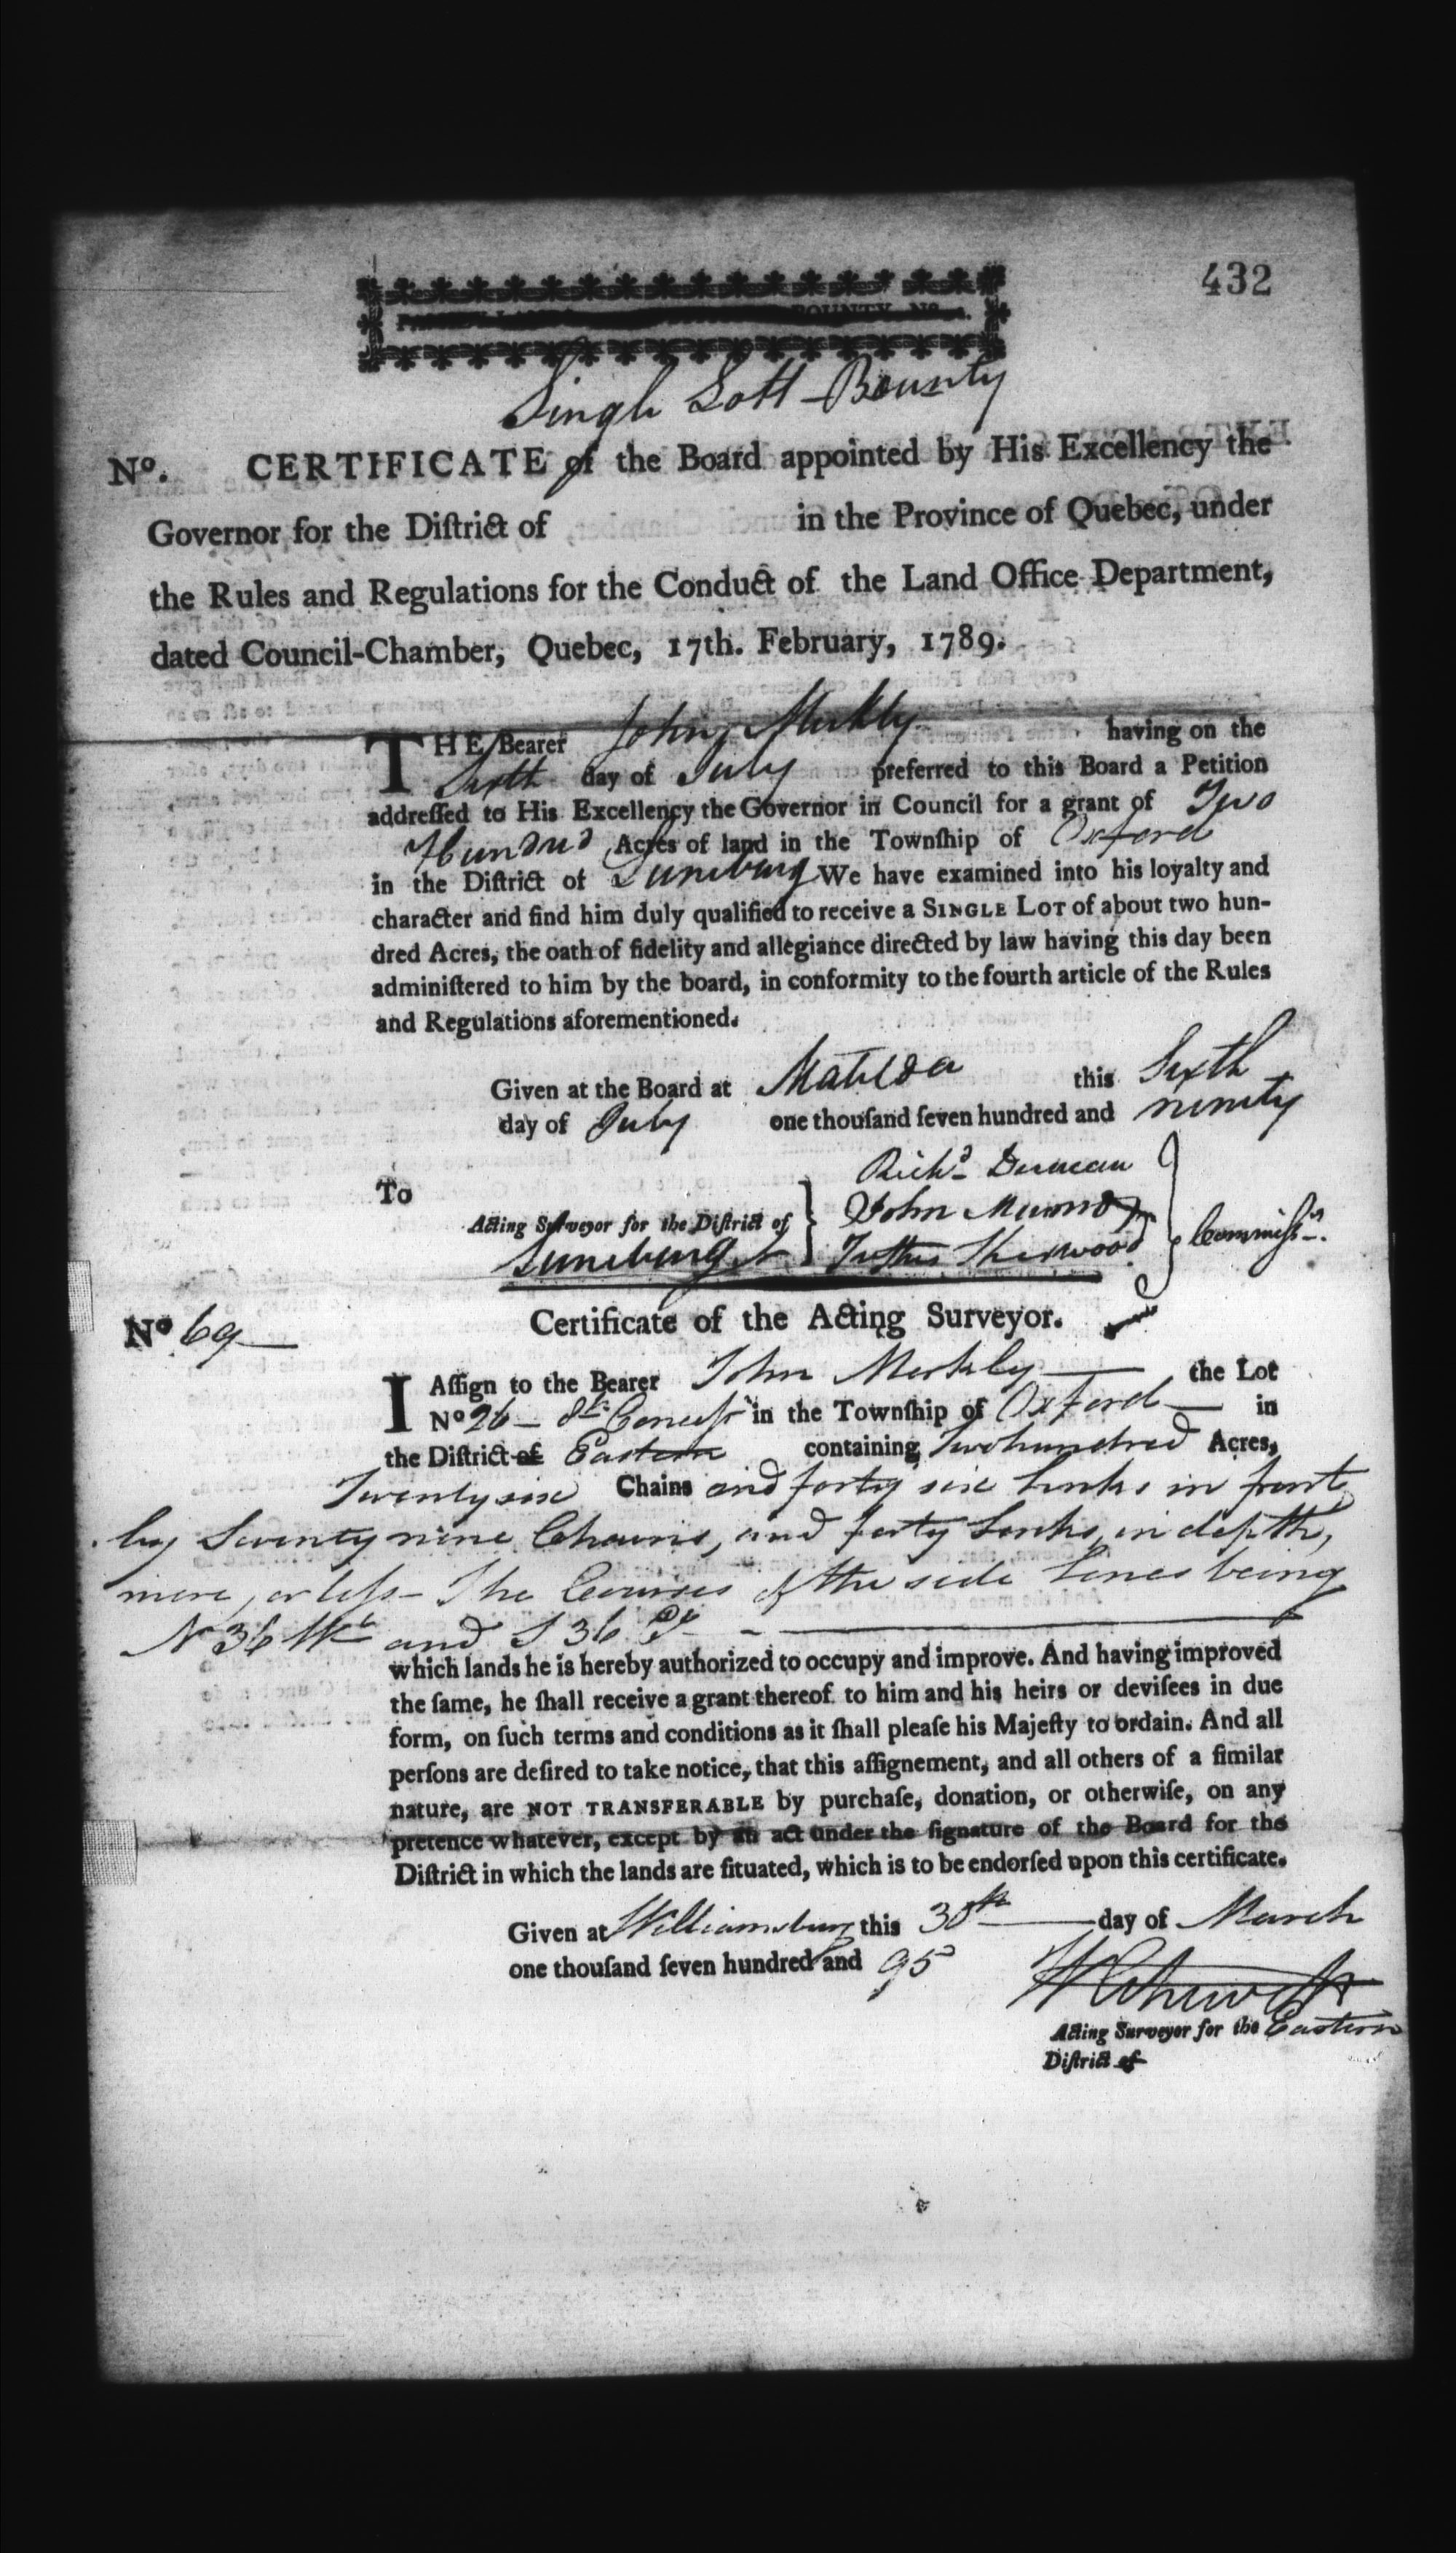 432
OUNTY No.
Single Lott Bounty
No. CERTIFICATE of the Board appointed by His Excellency the
Governor for the Diſtrict of in the Province of Quebec, under
the Rules and Regulations for the Conduct of the Land Office Department,
dated Council-Chamber, Quebec, 17th. February, 1789.
THE Bearer John Merkly having on the
Sixth day of July preferred to this Board a Petition
addreſſed to His Excellency the Governor in Council for a grant of Two
Hundred Acres of land in the Townſhip of Oxford
in the Diſtrict of Luneburg We have examined into his loyalty and
character and find him duly qualified to receive a SINGLE LOT of about two hun-
dred Acres, the oath of fidelity and allegiance directed by law having this day been
adminiſtered to him by the board, in conformity to the fourth article of the Rules
and Regulations aforementioned.
Given at the Board at Matilda this Sixth
day of July one thouſand ſeven hundred and ninety
Richd. Duncan
To
John Munro
Acting Surveyor for the Diſtrict of
Luneburg
Justus Sherwood
Commiſsrs.
Certificate of the Acting Surveyor.
No 69
I Aſſign to the Bearer John Merkly the Lot
No 26 - 8th. Conceſs in the Townſhip of Oxford in
the Diſtrict of Eastern containing Two hundred Acres,
Twenty six Chains and forty six links in front
by Seventy nine Chains, and forty links, in depth,
more, or leſs - The Courses of the side lines being
N 36 Wt and S 36 Et
which lands he is hereby authorized to occupy and improve. And having improved
the ſame, he ſhall receive a grant thereof to him and his heirs or deviſees in due
form, on ſuch terms and conditions as it ſhall pleaſe his Majeſty to ordain. And all
perſons are deſired to take notice, that this aſſignement, and all others of a ſimilar
nature, are NOT TRANSFERABLE by purchaſe, donation, or otherwiſe, on any
pretence whatever, except by an act under the ſignature of the Board for the
Diſtrict in which the lands are ſituated, which is to be endorſed upon this certificate.
Given at Williamsburg this 30th day of March
one thouſand ſeven hundred and 95
W Chewett
Acting Surveyor for the Eastern
Diſtrict of